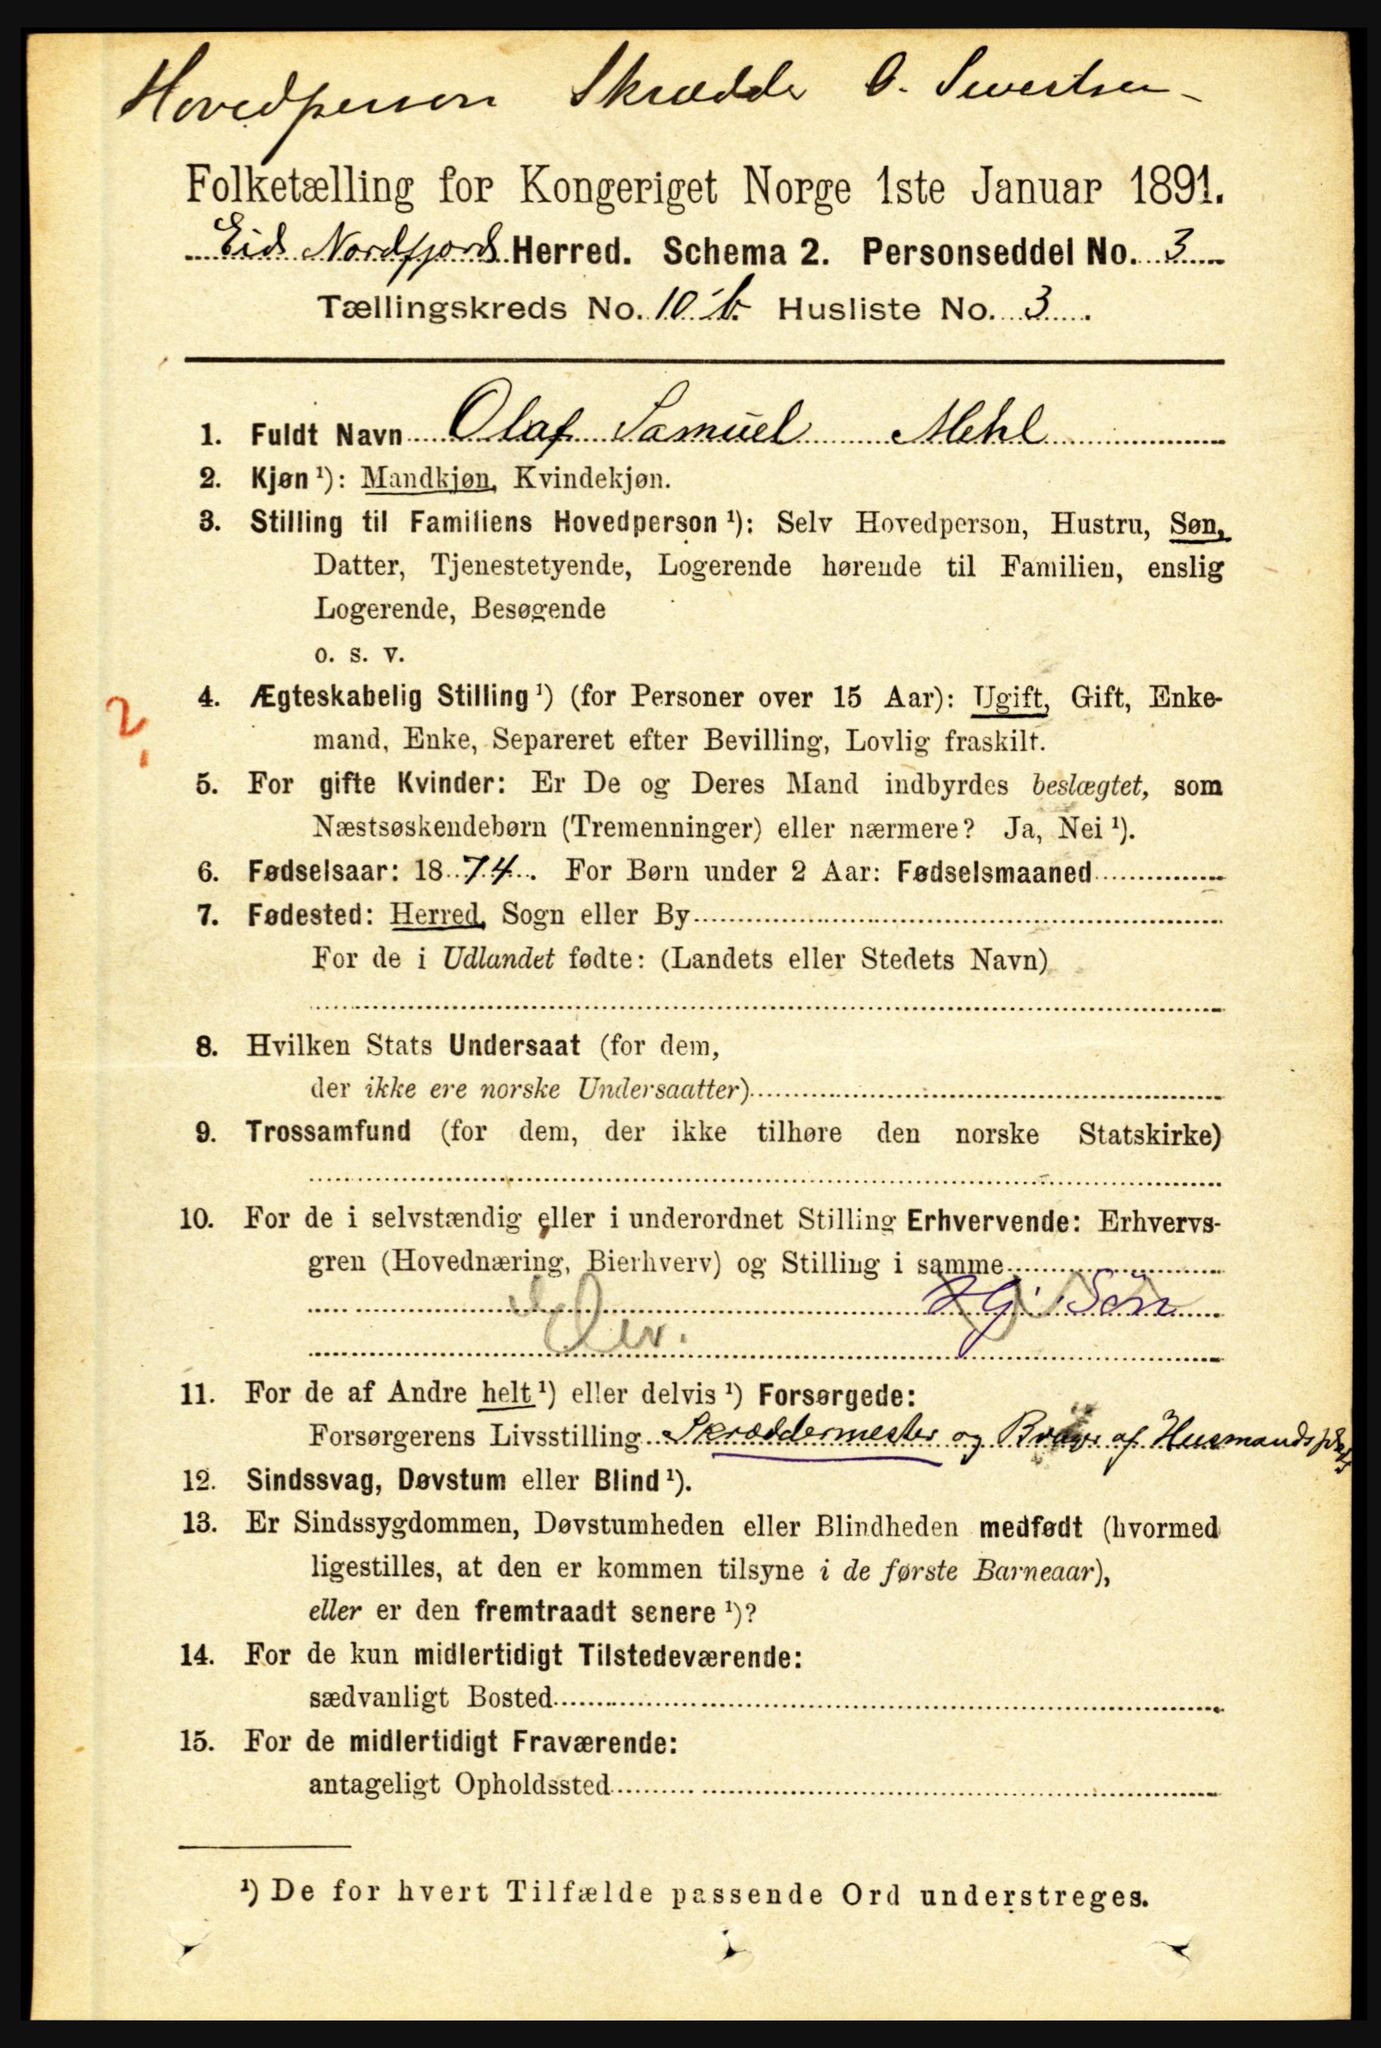 Hovedperson Skrædder O. Sivertsen
Folketælling for Kongeriget Norge 1ste Januar 1891.
Eid Nordfjord Herred. Schema 2. Personseddel No. 3
Tællingskreds No. 10 b. Husliste No. 3.
1. Fuldt Navn Olaf Samuel Mehl
2. Kjøn ¹): Mandkjøn, Kvindekjøn.
3. Stilling til Familiens Hovedperson ¹): Selv Hovedperson, Hustru, Søn,
Datter, Tjenestetyende, Logerende hørende til Familien, enslig
Logerende, Besøgende
o. s. v.
4. Ægteskabelig Stilling ¹) (for Personer over 15 Aar): Ugift, Gift, Enke-
2
mand, Enke, Separeret efter Bevilling, Lovlig fraskilt.
5. For gifte Kvinder: Er De og Deres Mand indbyrdes beslægtet, som
Næstsøskendebørn (Tremenninger) eller nærmere? Ja, Nei ¹).
6. Fødselsaar: 1874. For Børn under 2 Aar: Fødselsmaaned
7. Fødested: Herred, Sogn eller By
For de i Udlandet fødte: (Landets eller Stedets Navn)
8. Hvilken Stats Undersaat (for dem,
der ikke ere norske Undersaatter)
9. Trossamfund (for dem, der ikke tilhøre den norske Statskirke)
10. For de i selvstændig eller i underordnet Stilling Erhvervende: Erhvervs-
gren (Hovednæring, Bierhverv) og Stilling i samme
Søn
11. For de af Andre helt ¹) eller delvis ¹) Forsørgede:
Forsørgerens Livsstilling Skræddermester og Bruger af Husmandsplads
12. Sindssvag, Døvstum eller Blind ¹).
13. Er Sindssygdommen, Døvstumheden eller Blindheden medfødt (hvormed
ligestilles, at den er kommen tilsyne i de første Barneaar),
eller er den fremtraadt senere ¹)?
14. For de kun midlertidigt Tilstedeværende:
sædvanligt Bosted
15. For de midlertidigt Fraværende:
antageligt Opholdssted
¹) De for hvert Tilfælde passende Ord understreges.